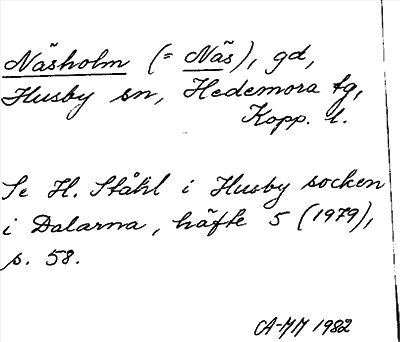 Näsholm (= Näs), gd,
Husby sn, Hedemora tg,
Kopp. l.
Se H. Ståhl i Husby socken
i Dalarna, häfte 5 (1979),
s. 58.
CA-MM 1982